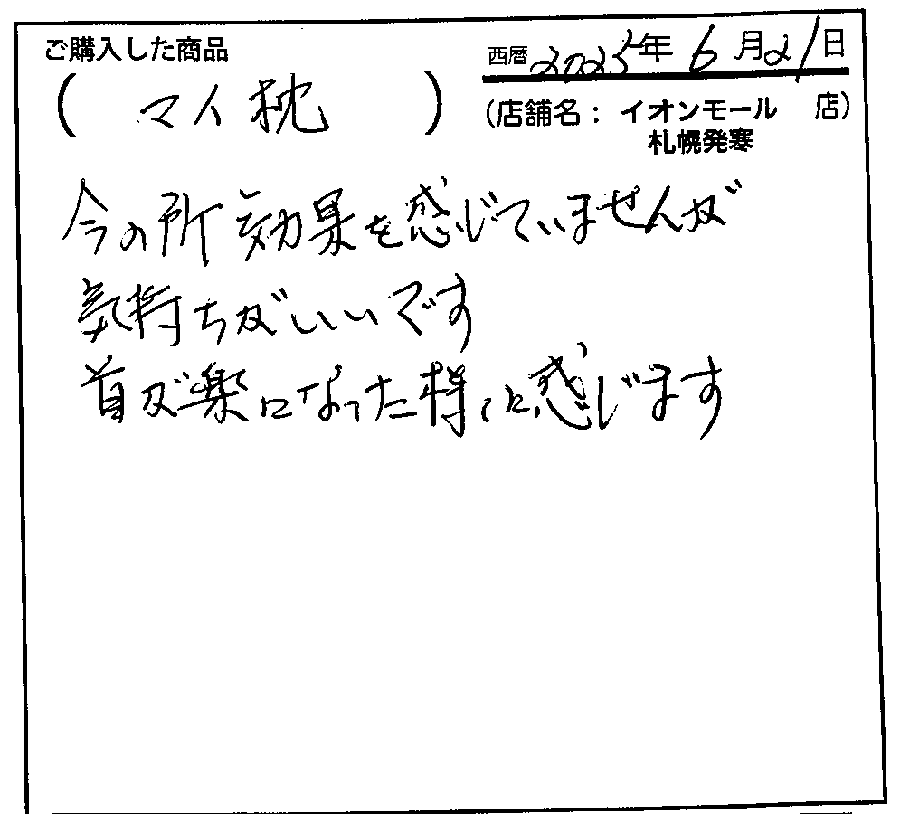 ご購入した商品
西暦 2025年 6月21日
( マイ枕 )
(店舗名： イオンモール 店)
札幌発寒
今の所効果を感じていませんが
気持ちがいいです
首が楽になった様に感じます